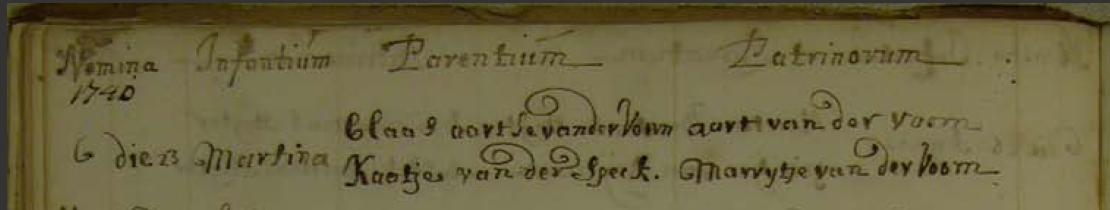 Nomina Infantium Parentium Patrinorum
1740
Claas aartse vander Voorn aart van der voorn
6 die 23 Martina
Kaatje van der Speck. Marrytje van der Voorn